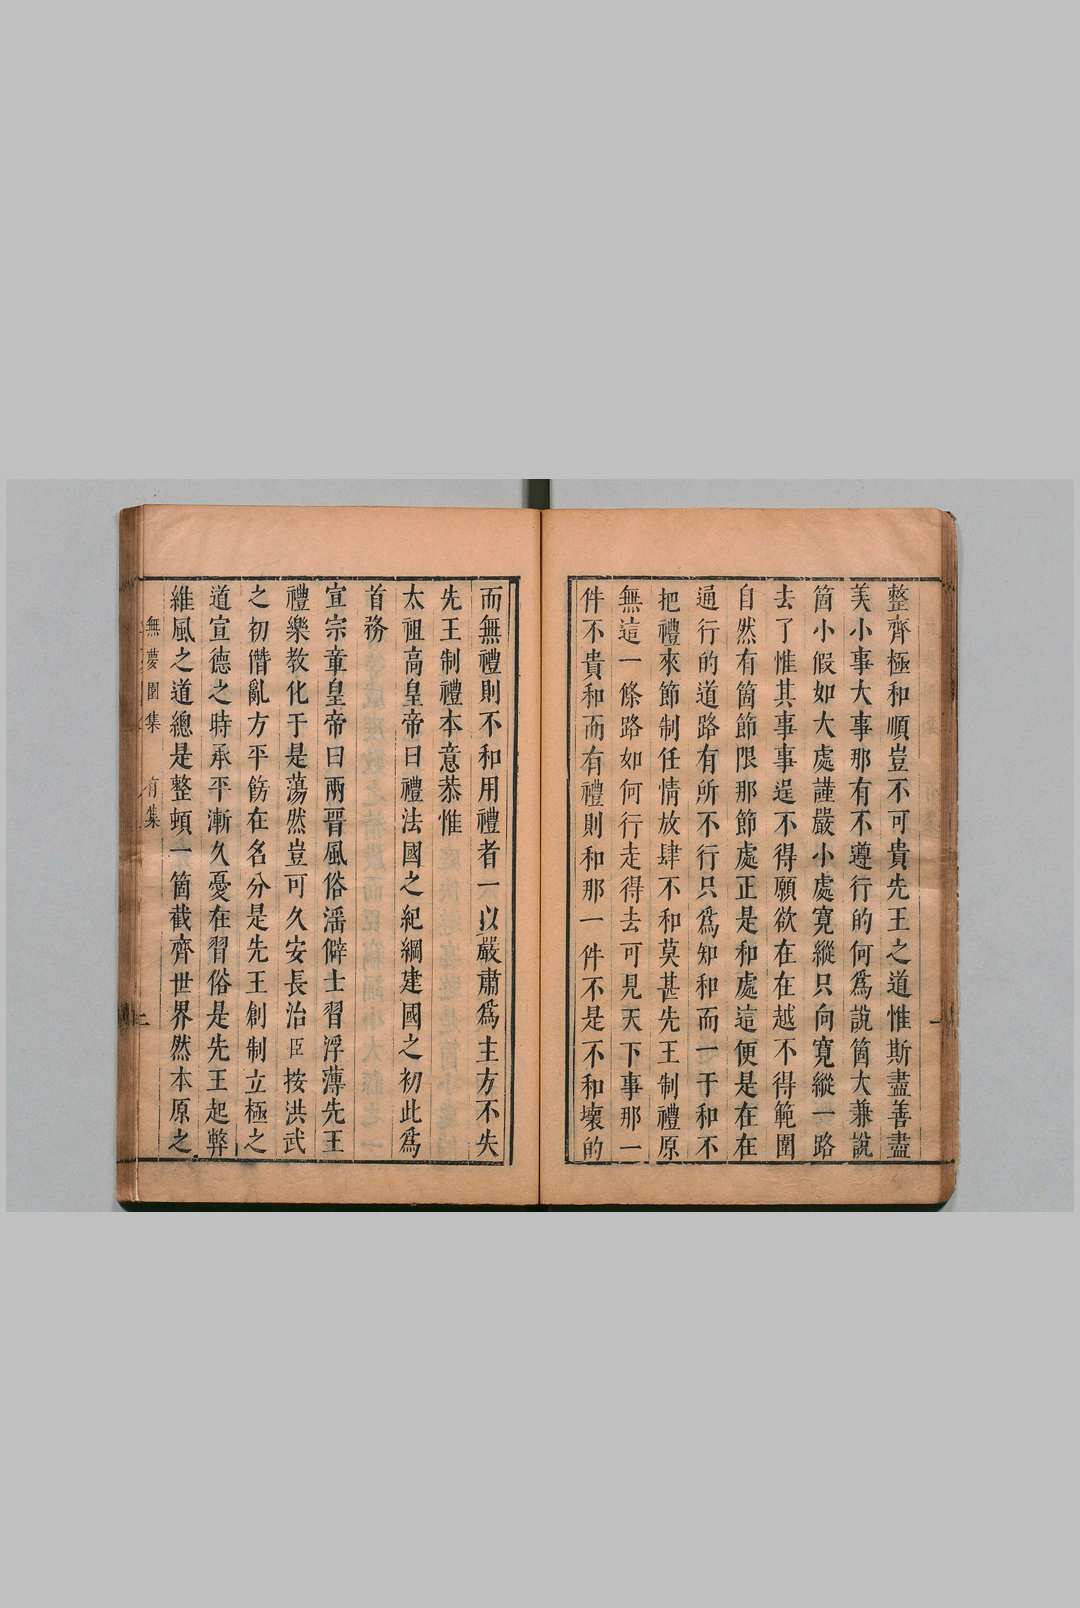 整齊極和順豈不可貴先王之道惟斯盡善盡
美小事大事那有不遵行的何爲說箇大兼說
箇小假如大處謹嚴小處寬縱只向寬縱一路
去了惟其事事逞不得願欲在在越不得範圍
自然有箇節限那節處正是和處這便是在在
通行的道路有所不行只爲知和而一于和不
把禮來節制任情放肆不和莫甚先王制禮原
無這一條路如何行走得去可見天下事那一
件不貴和而有禮則和那一件不是不和壞的
而無禮則不和用禮者一以嚴肅爲主方不失
先王制禮本意恭惟
太祖高皇帝曰禮法國之紀綱建國之初此爲
首務
宣宗章皇帝曰兩晉風俗滛僻士習浮薄先王
禮樂教化于是蕩然豈可久安長治臣按洪武
之初僭亂方平飭在名分是先王創制立極之
道宣德之時承平漸久憂在習俗是先王起弊
維風之道總是整頓一箇截齊世界然本原之
無夢園集 有集 二